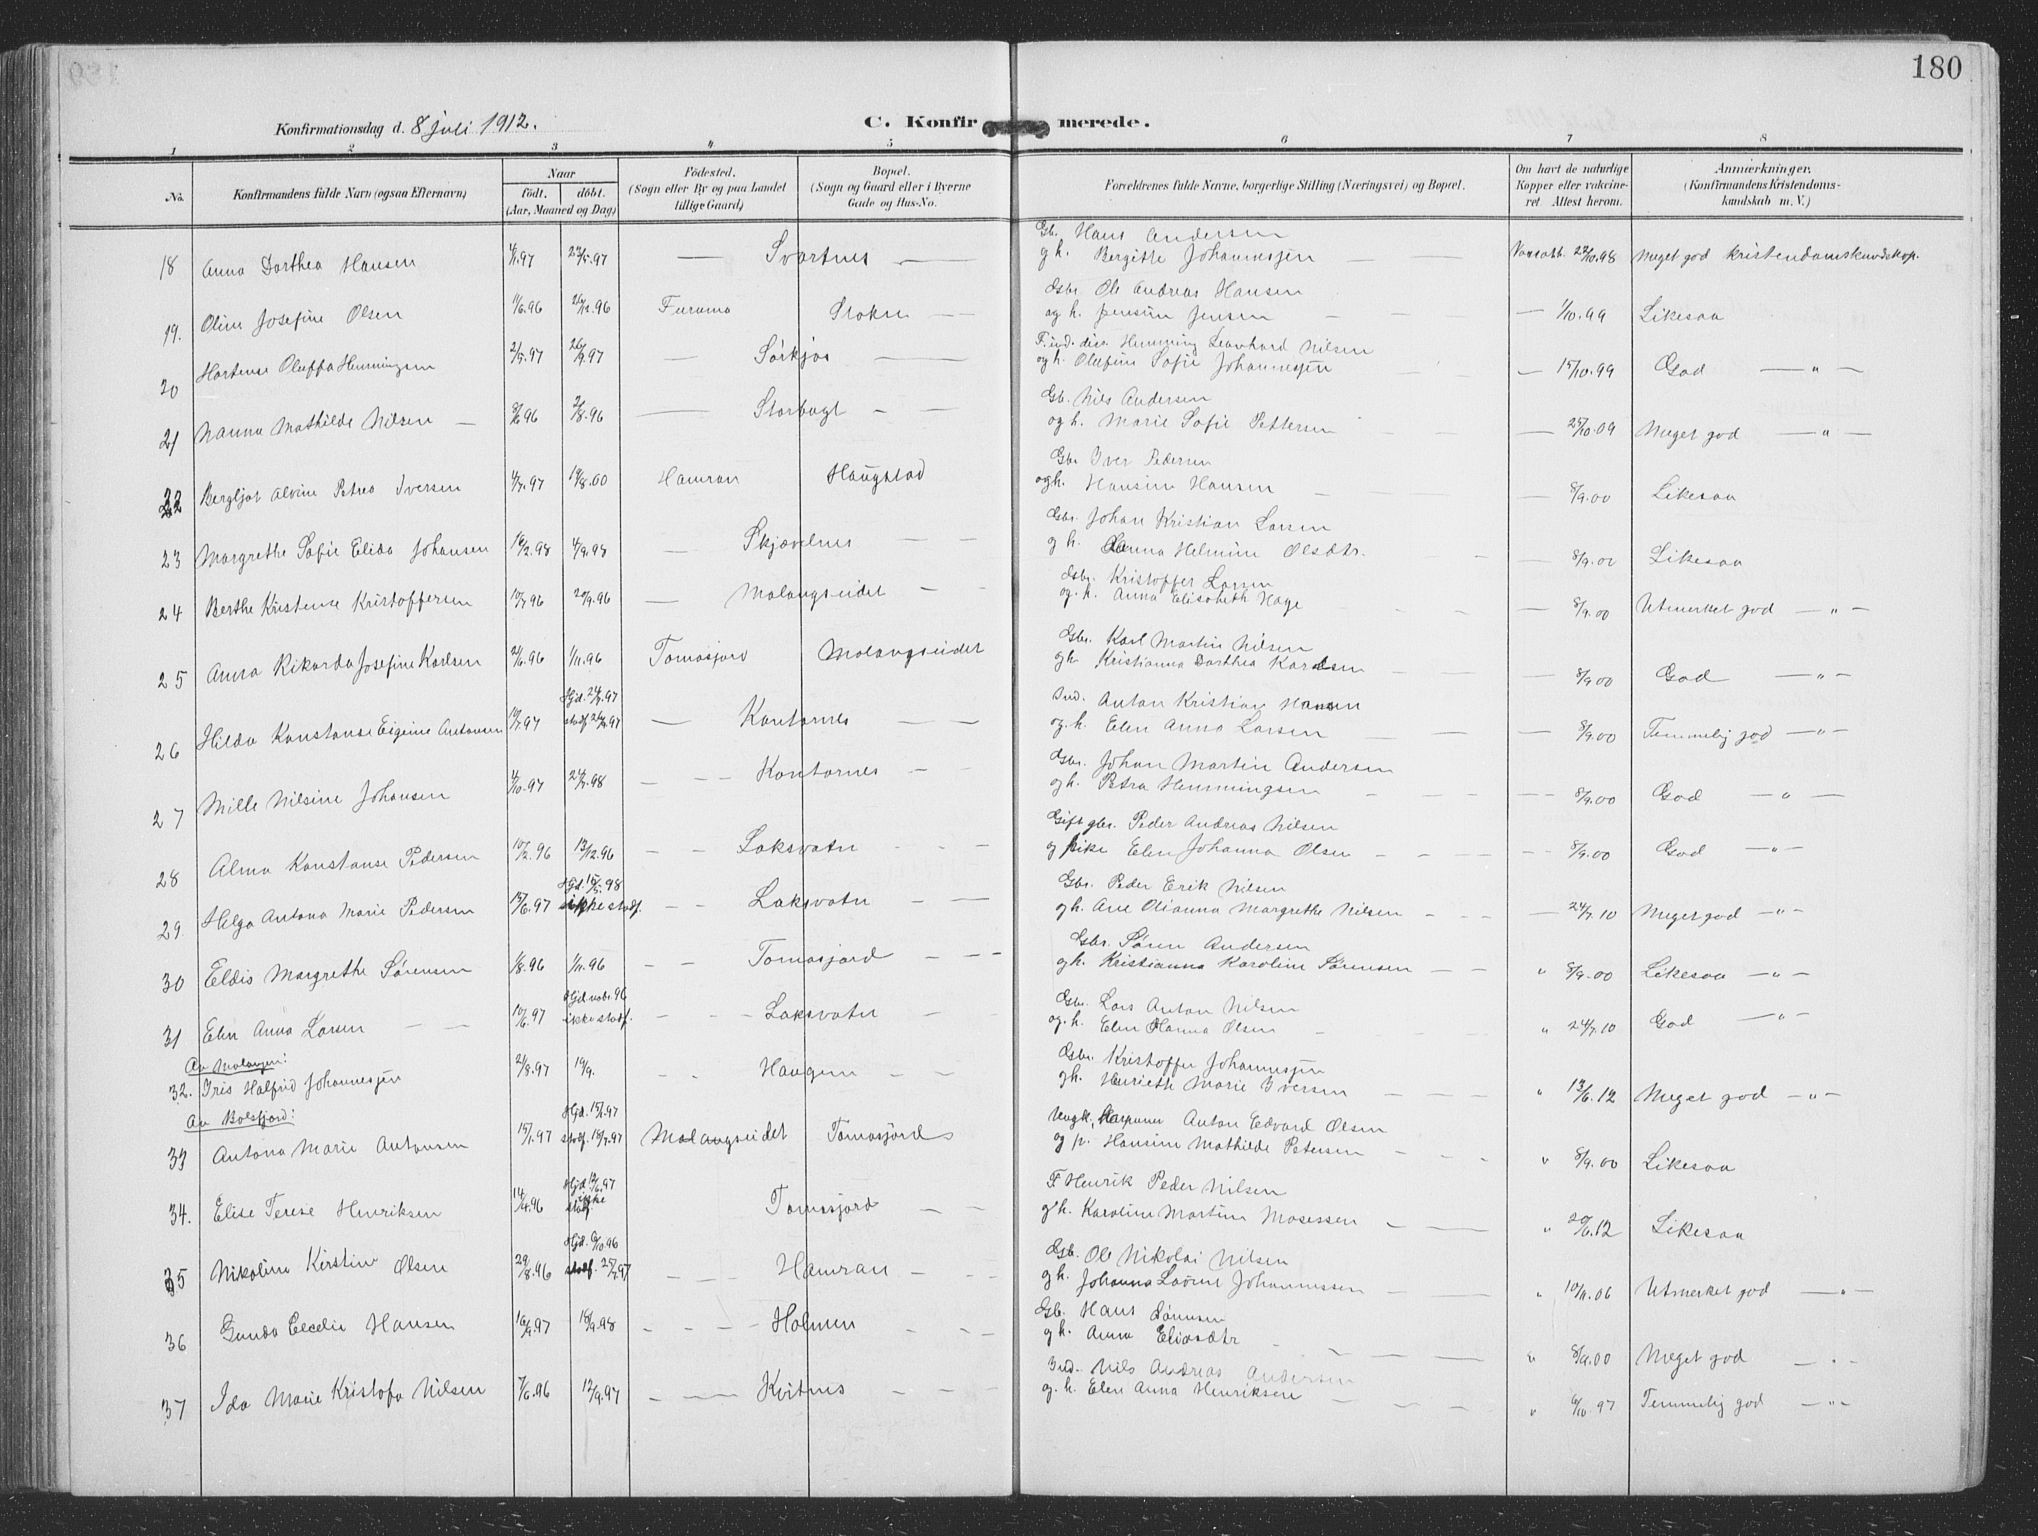 180
Konfirmationsdag d. 8 juli 1912.
C. Konfirmerede.
1 2 3 4 5 6 7 8
No. Konfirmandens fulde Navn (ogsaa Efternavn) Naar födt. döbt. (Aar, Maaned og Dag) Födested. (Sogn eller By og paa Landet tillige Gaard) Bopæl. (Sogn og Gaard eller i Byerne Gade og Hus-No. Forældrenes fulde Navne, borgerlige Stilling (Næringsvei) og Bopæl. Om havt de naturlige Kopper eller vakcineret. Attest herom. Anmærkninger. (Konfirmandens Kristendomskundskab m. V.)
Gb. Hans Andersen
18 Anna Dorthea Hansen 4/1.97 23/5.97 — Svartnes — og h. Bergitte Johannesjen — — 23/10.98 Meget god kristendomskundskap.
Gbr. Ole Andreas Hansen
19. Oline Josefine Olsen 11/6.96 26/12.96 Furumo Stokn — og h. Jensine Jensen — — — 1/10.99 Likesaa
F. ind. diss. Hemming Leonhard Nilsen
20 Hortense Oluffa Hemmingsen 21/5.97 26/9.97 — Sørkjos — og h. Olufine Sofie Johannesjen — — — 15/10.99 God — " —
Gb. Nils Andersen
21 Nanna Mathilde Nilsen — 8/6.96 2/8.96 — Storbugt — — og h. Marie Sofie Pettersen — — — 25/10.09 Meget god — " —
Gbr Iver Pedersen
22 Bergljot Alvine Petrea Iversen 4/7.97 19/8.00 Hamran Haugstad og h. Hansine Hansen — — — 8/9.00 Likesaa
Gbr. Johan Kristian Larsen
23 Margrethe Sofie Elida Johansen 16/2.98 4/9.98 — Skjævelnes — — og h. Anna Helmine Olsdtr. — — — 8/9.00 Likesaa
Gbr. Kristoffer Larsen
24 Berthe Kristense Kristoffersen 10/7.96 20/9.96 — Malangseidet — — og. h. Anna Elisabeth Hage — — — 8/9.00 Utmerket god — " —
Gbr. Karl Martin Nilsen
25 Anna Rikarda Josefine Karlsen 21/6.96 1/11.96 Tomasjord Malangseidet og h Kristianna Dorthea Karlsen — — — 8/9.00 God — " —
Hjd. 24/7.97 Ind. Anton Kristian Hansen
26 Hilda Konstanse Eigine Antonsen 10/7.97 stadf 26/9.97 — Kantornes — — og. h. Elen Anna Larsen — — — 8/9.00 Temmelig god — " —
Gbr. Johan Martin Andersen
27 Mille Nilsine Johansen 4/10.97 24/7.98 — — Kantornes — — og h. Petra Hemmingsen — — — 8/9.00 God — " —
Gift gbr. Peder Andreas Nilsen
28 Alma Konstanse Pedersen 10/2.96 13/12.96 — — Laksvatn — — og pike Elen Johanna Olsen — — — 8/9.00 God — " —
Hjd. 15/5.98 Gbr. Peder Erik Nilsen
29. Helga Antona Marie Pedersen 15/6.97 ikke stadf. — — Laksvatn — — og h. Ane Olianna Margrethe Nilsen — — — 24/7.10 Meget god — " —
Gbr. Søren Andersen
30 Eldis Margrethe Sørensen 1/8.96 1/11.96 — — Tomasjord — — og h. Kristianna Karoline Sørensen — — " 8/9.00 Likesaa — " —
Hjd nobr. 96 Gbr. Lars Anton Nilsen
31 Elen Anna Larsen — — 10/6.97 ikke stadf. — — Laksvatn — — og. h. Elen Hanna Olsen — — " 24/7.10 God — " —
Av Malangen: Gbr. Kristoffer Johannesjen
32. Iris Halfrid Johannesjen 21/8.97 19/9. — — Haugen — — og h. Henriette Marie Iversen — " 13/6.12 Meget god — " —
Av Balsfjord: Hjd. 15/1.97 Ungk. Anton Edvard Olsen
33 Antona Marie Antonsen 15/1.97 stadf. 18/7.97 Malangseidet Tomasjord og p. Hansine Mathilde Petersen — — " 8/9.00 Likesaa
Hjd 13/6.97 F Henrik Peder Nilsen
34. Elise Terese Henriksen 14/4.96 ikke stadf Tomasjord — — og h. Karoline Martine Mosessen — — " 20/6.12 Likesaa
Hjd. 6/10.96 Gb. Ole Nikolai Nilsen
35 Nikoline Kirstine Olsen 29/8.96 stadf. 25/7.97 — — Hamran — — og h. Johanna Laorense Johannessen — — " 10/11.06 Utmerket god — " —
Gb. Hans Sørensen
36 Gunda Cecelie Hansen 16/9.97 18/9.98 — — Holmen — — og h. Anna Eliasdtr — — " 8/9.00 Meget god — " —
Ind. Nils Andreas Andersen
37 Ida Marie Kristofa Nilsen 7/6.96 12/9.97 — — Kvitnes — — og. h. Elen Anna Henriksen — — " 6/10 97 Temmelig god — " —